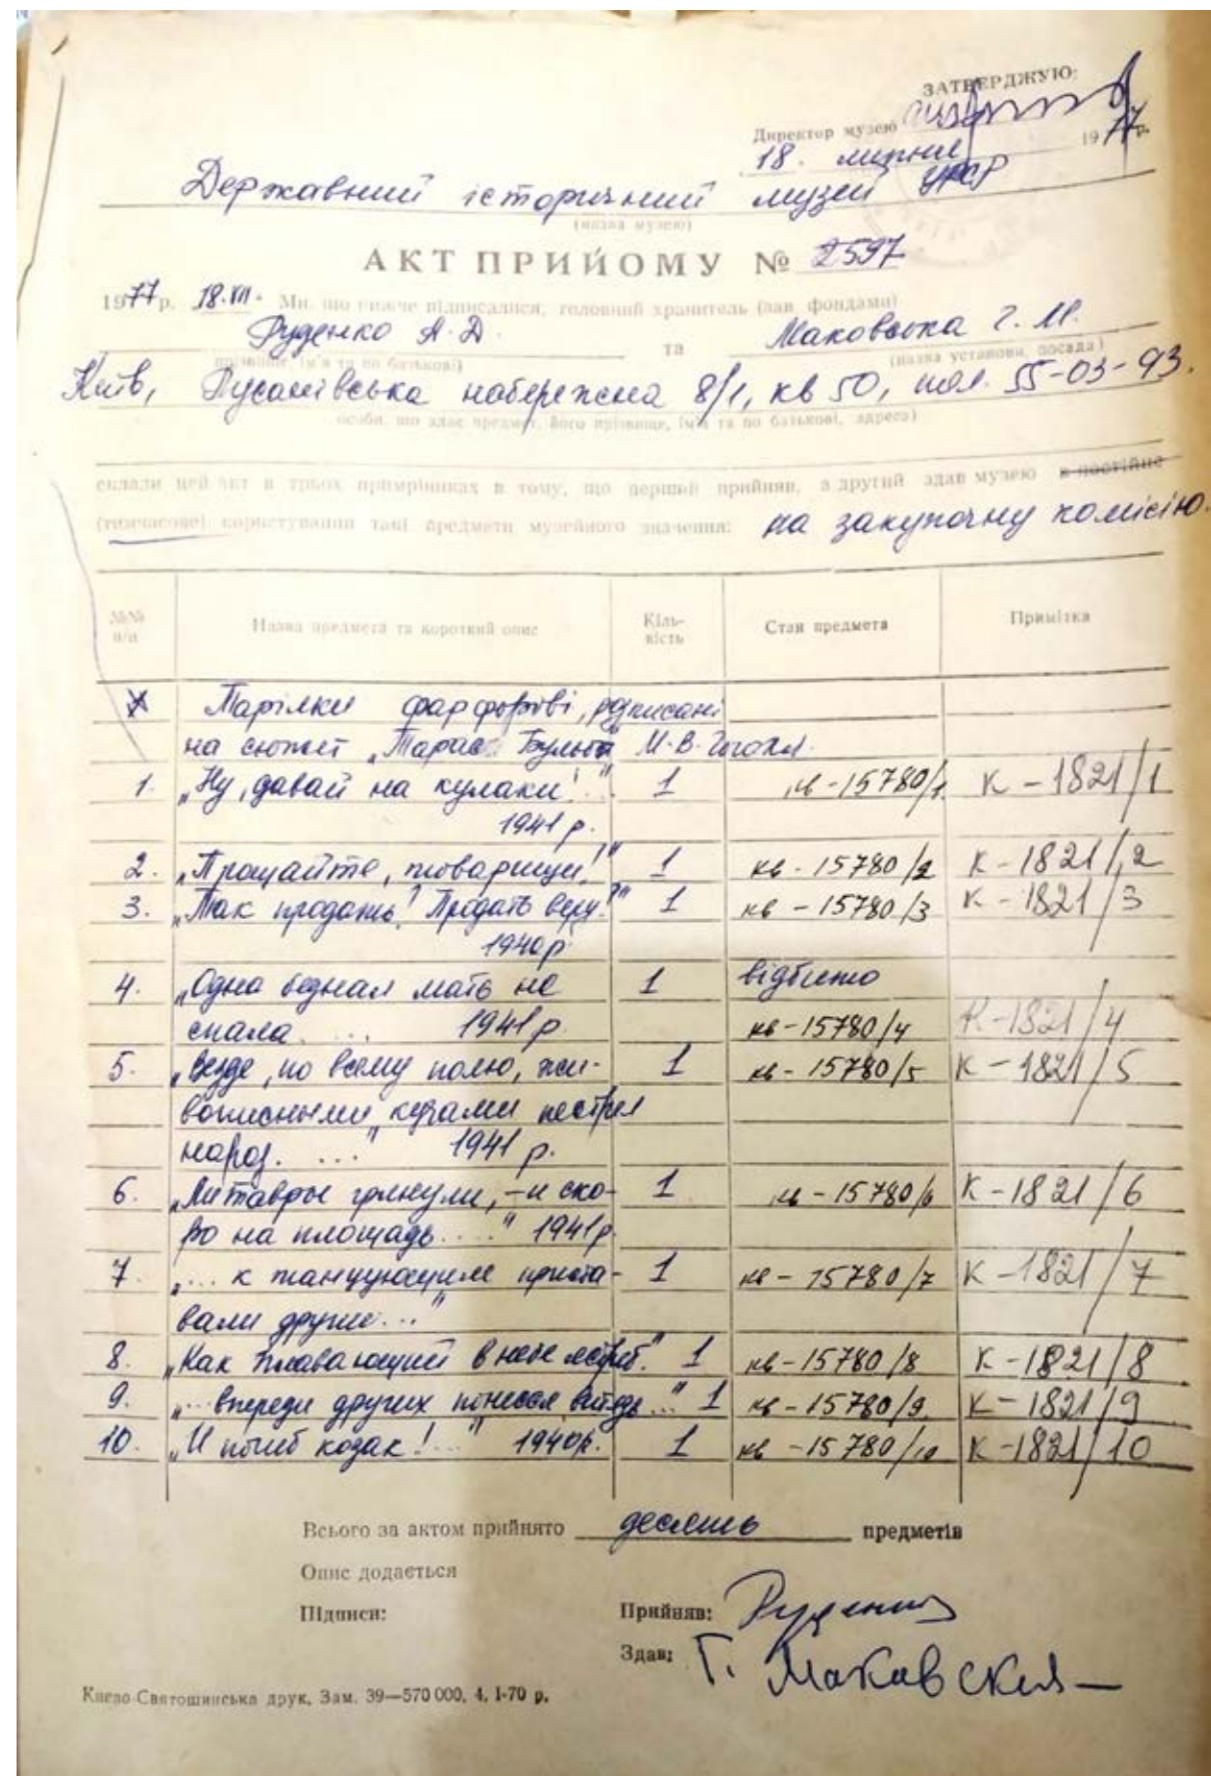 ЗАТВЕРДЖУЮ:
Директор музею
18. липня 1977 р.
Державний історичний музей УРСР
(назва музею)
АКТ ПРИЙОМУ № 2597
1977 р. 18.VII. Ми, що нижче підписалися, головний хранитель (зав. фондами)
Руденко А. Д. та Маковська Г. М.
(прізвище, ім'я та по батькові) (назва установи, посада)
Київ, Русанівська набережна 8/1, кв 50, 55-03-93.
особи, що здає предмет, його прізвище, ім'я та по батькові, адреса)
склали цей акт в трьох примірниках в тому, що перший прийняв, а другий здав музею в постійне
(тимчасове) користування такі предмети музейного значення: на закупочну комісію.
№№ п/п Назва предмета та короткий опис Кіль- Стан предмета Примітка
кість
Тарілки фарфорові, розписані
на сюжет „Тарас Бульба" М. В. Гоголя.
1. „Ну, давай на кулаки!.." 1 кв-15780/1 К-1821/1
1941 р.
2. „Прощайте, товарищи!" 1 кв-15780/2 К-1821/2
3. „Так продать? Продать веру?" 1 кв-15780/3 К-1821/3
1940р
4. „Одна бедная мать не 1 відбито
спала... 1941р кв-15780/4 К-1821/4
5. „Везде, по всему полю, жи- 1 кв-15780/5 К-1821/5
вописными кучами пестрел
народ. ..." 1941 р.
6. „Литавры грянули, – и ско- 1 кв-15780/6 К-1821/6
ро на площадь...." 1941р
7. „... к танцующим приста- 1 кв-15780/7 К-1821/7
вали другие..."
8. „Как плавающий в небе ястреб." 1 кв-15780/8 К-1821/8
9. „... впереди других понесся витязь..." 1 кв-15780/9 К-1821/9
10. „И погиб козак!..." 1940р. 1 кв-15780/10 К-1821/10
Всього за актом прийнято десять предметів
Опис додається
Підписи: Прийняв: Руденко
Здав: Г. Маковская
Києво-Святошинська друк, Зам. 39—570 000, 4, 1-70 р.